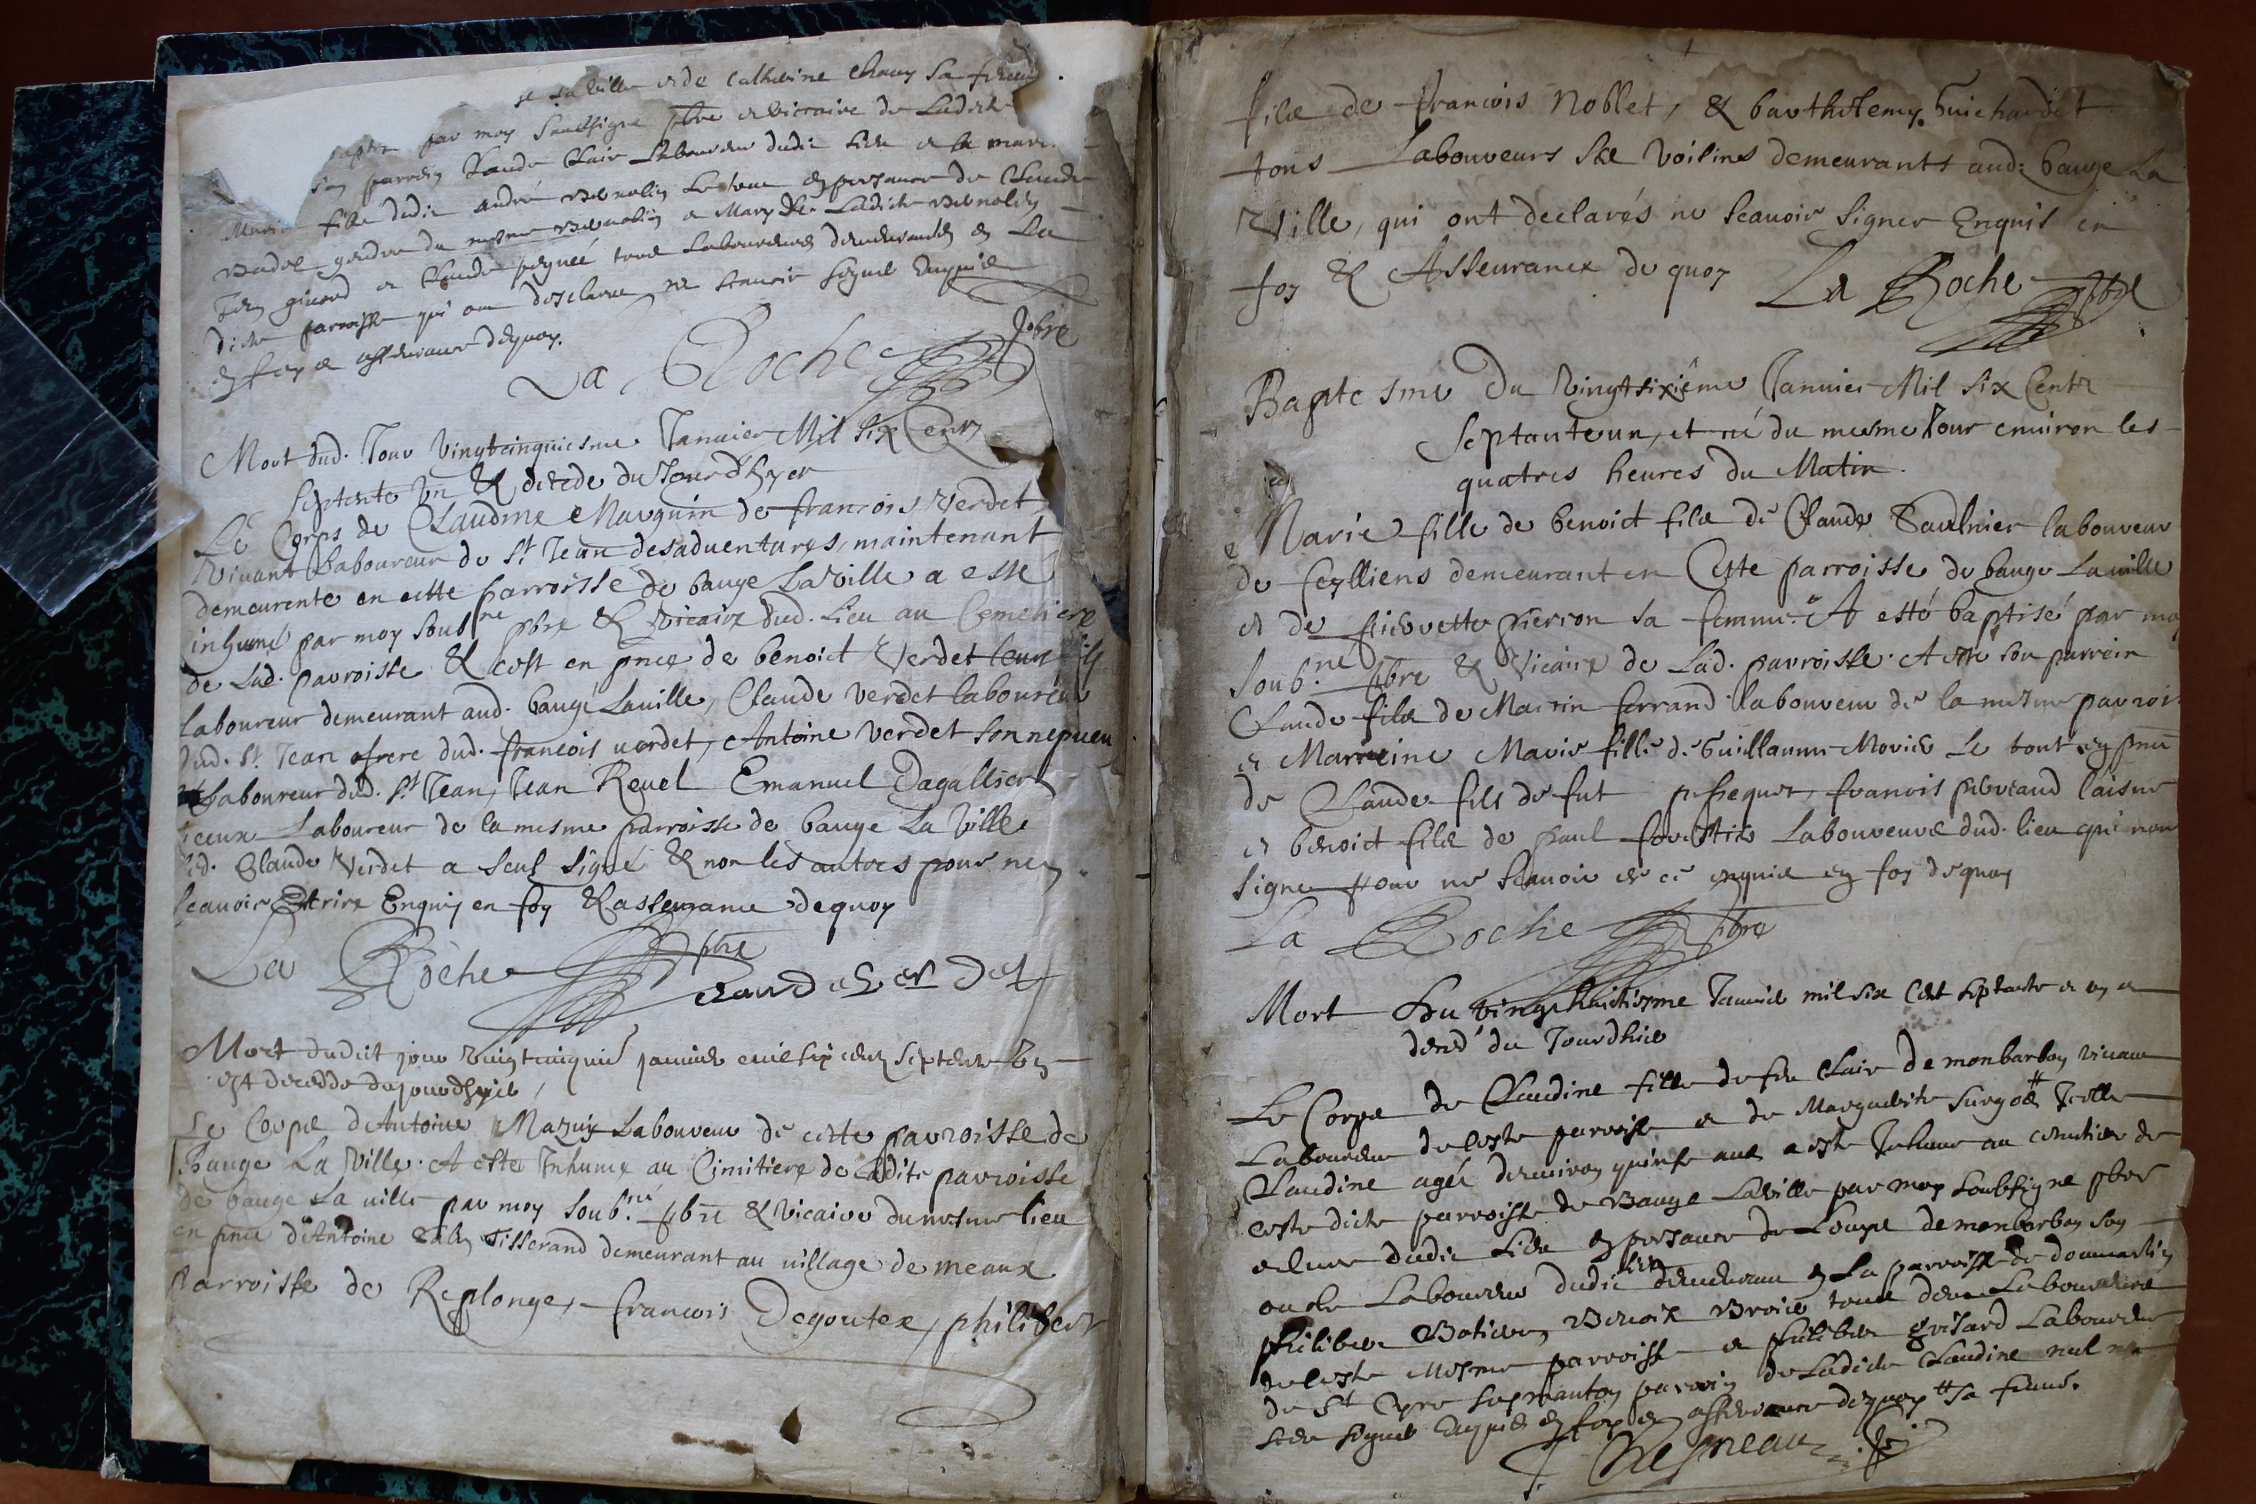 la ville et de Catherine Chany sa femme
par moy soubsigné pbre et vicaire de Ladicte
son parrein Claude Clair Laboureur dudit lieu et sa marr
Marie fille dudit andré Bernolin Le tout en presance de Claude
gendre du mesme Bernolin a Mary de Ladicte Bernolin
girard et Claude tous Laboureurs demeurantz en La
dicte parroisse qui ont desclaré ne scauoir signer Enquis
en foy et asseurance dequoy.
La Roche pbre
Mort dud. Jour Vingtcinquiesme Januier Mil Six Centz
septente Vn & decede du Jour d'hyer
Le Corps de Claudine Marguin de francois Verdet
Viuant Laboureur de St Jean desaduentures, maintenant
demeurente en cette parroisse de bauge La Ville a esté
inhumé par moy soubne pbre & Vicaire dud. Lieu au Cemetiere
de Lad. parroisse & cest en pnce de benoict Verdet leur fils
laboureur demeurant aud. baugé Lauille, Claude Verdet laboureur
dud. St. Jean frere dud. francois uerdet, Antoine Verdet son nepueu
Laboureur dud. St Jean, Jean Reuel Emanuel Dagallier
iceux Laboureur de la mesme parroisse de bauge La Ville
led. Claude Verdet a seul signé & non les autres pour ne
scauoir Escrire Enquis en foy & asseurance dequoy
La Roche pbre
claude verdet
Mort dudit jour vingtcinquie januier mil six cens septente Vn
est decedde du jourdhyer
Le Corps d'Antoine Mazuy Laboureur de ceste parroisse de
Bauge La Ville. A esté Inhumé au Cimitiere de Ladite parroisse
de bauge La uille par moy soub.né pbre & Vicaire du mesme lieu
en pnce d'Antoine Tisserand demeurant au uillage de meaux
Parroisse de Replonge, francois Degoutex, philibert
fils de francois Noblet, & barthelemy Guichardet
tous Laboureurs ses Voisins demeurants aud. bauge La
Ville, qui ont declarés ne scauoir signer Enquis en
foy & Asseurance de quoy La Roche pbre
Baptesme Du Vingtsixiéme Januier Mil six Centz
septanteun, et né du mesme Jour enuiron les
quatres heures du Matin.
Marie fille de benoict filz de Claude Saulnier laboureur
de feylliens demeurant en Cette parroisse de bauge Lauille
et de pierrette pierron sa femme. A esté baptisé par moy
soub.né pbre & Vicaire de Lad. parroisse. A esté son parrein
Claude filz de Martin ferrand laboureur de la mesme parrois.
et Marreine Marie fille de Guillaume Morier Le tout en pnce
de Claude fils de fut pefrequet, francois laisne
et benoict filz de paul forestier Laboureurs dud. lieu qui nont
signé pour ne scauoir de ce enquis en foy de quoy
La Roche pbre
Mort Du vingthuictiesme Januier mil six cent septante et vn et
deced' du Jourdhier
Le Corps de Claudine fille de feu Clair de monbarbon viuant
Laboureur de ceste parroisse et de Marguerite # Icelle
Claudine agée denuiron quinse ans a esté Inhumé au cimetiere de
ceste dicte parroisse de Bauge Laville par moy soubsigné pbre
et curé dudit lieu en presance de Loup de monbarbon son
oncle Laboureur dudit lieu demeurant en La parroisse de dommartin
philibert Botier, Benoist Broié tous deux Laboureurs
de ceste mesme parroisse et philibert grisard Laboureur
de St Cyre parrein de Ladicte Claudine nul na
sceu signer Enquis en foy et asseurance dequoy # sa femme.
Chesneau